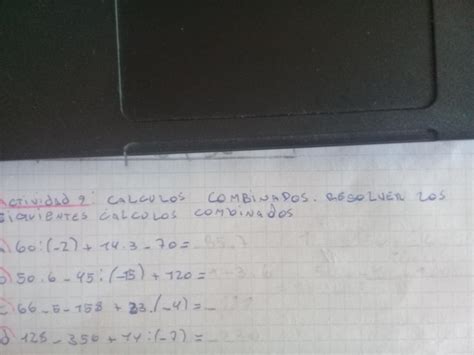 Actividad 9: CALCULOS COMBINADOS. RESOLVER LOS
SIGUIENTES CALCULOS COMBINADOS
a) 60:(-2) + 14.3 - 70 =
b) 50.6 - 45:(-15) + 120 =
c) 66 - 5 - 158 + 23.(-4) = -
d) 128 - 356 + 14:(-7) =